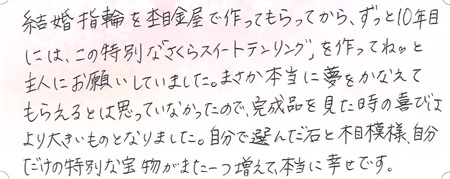 結婚指輪を杢目金屋で作ってもらってから、ずっと10年目
には、この特別な「さくらスイートテンリング」を作ってねッと
主人にお願いしていました。まさか本当に夢をかなえて
もらえるとは思っていなかったので、完成品を見た時の喜びは
より大きいものとなりました。自分で選んだ石と木目模様、自分
だけの特別な宝物がまた一つ増えて、本当に幸せです。